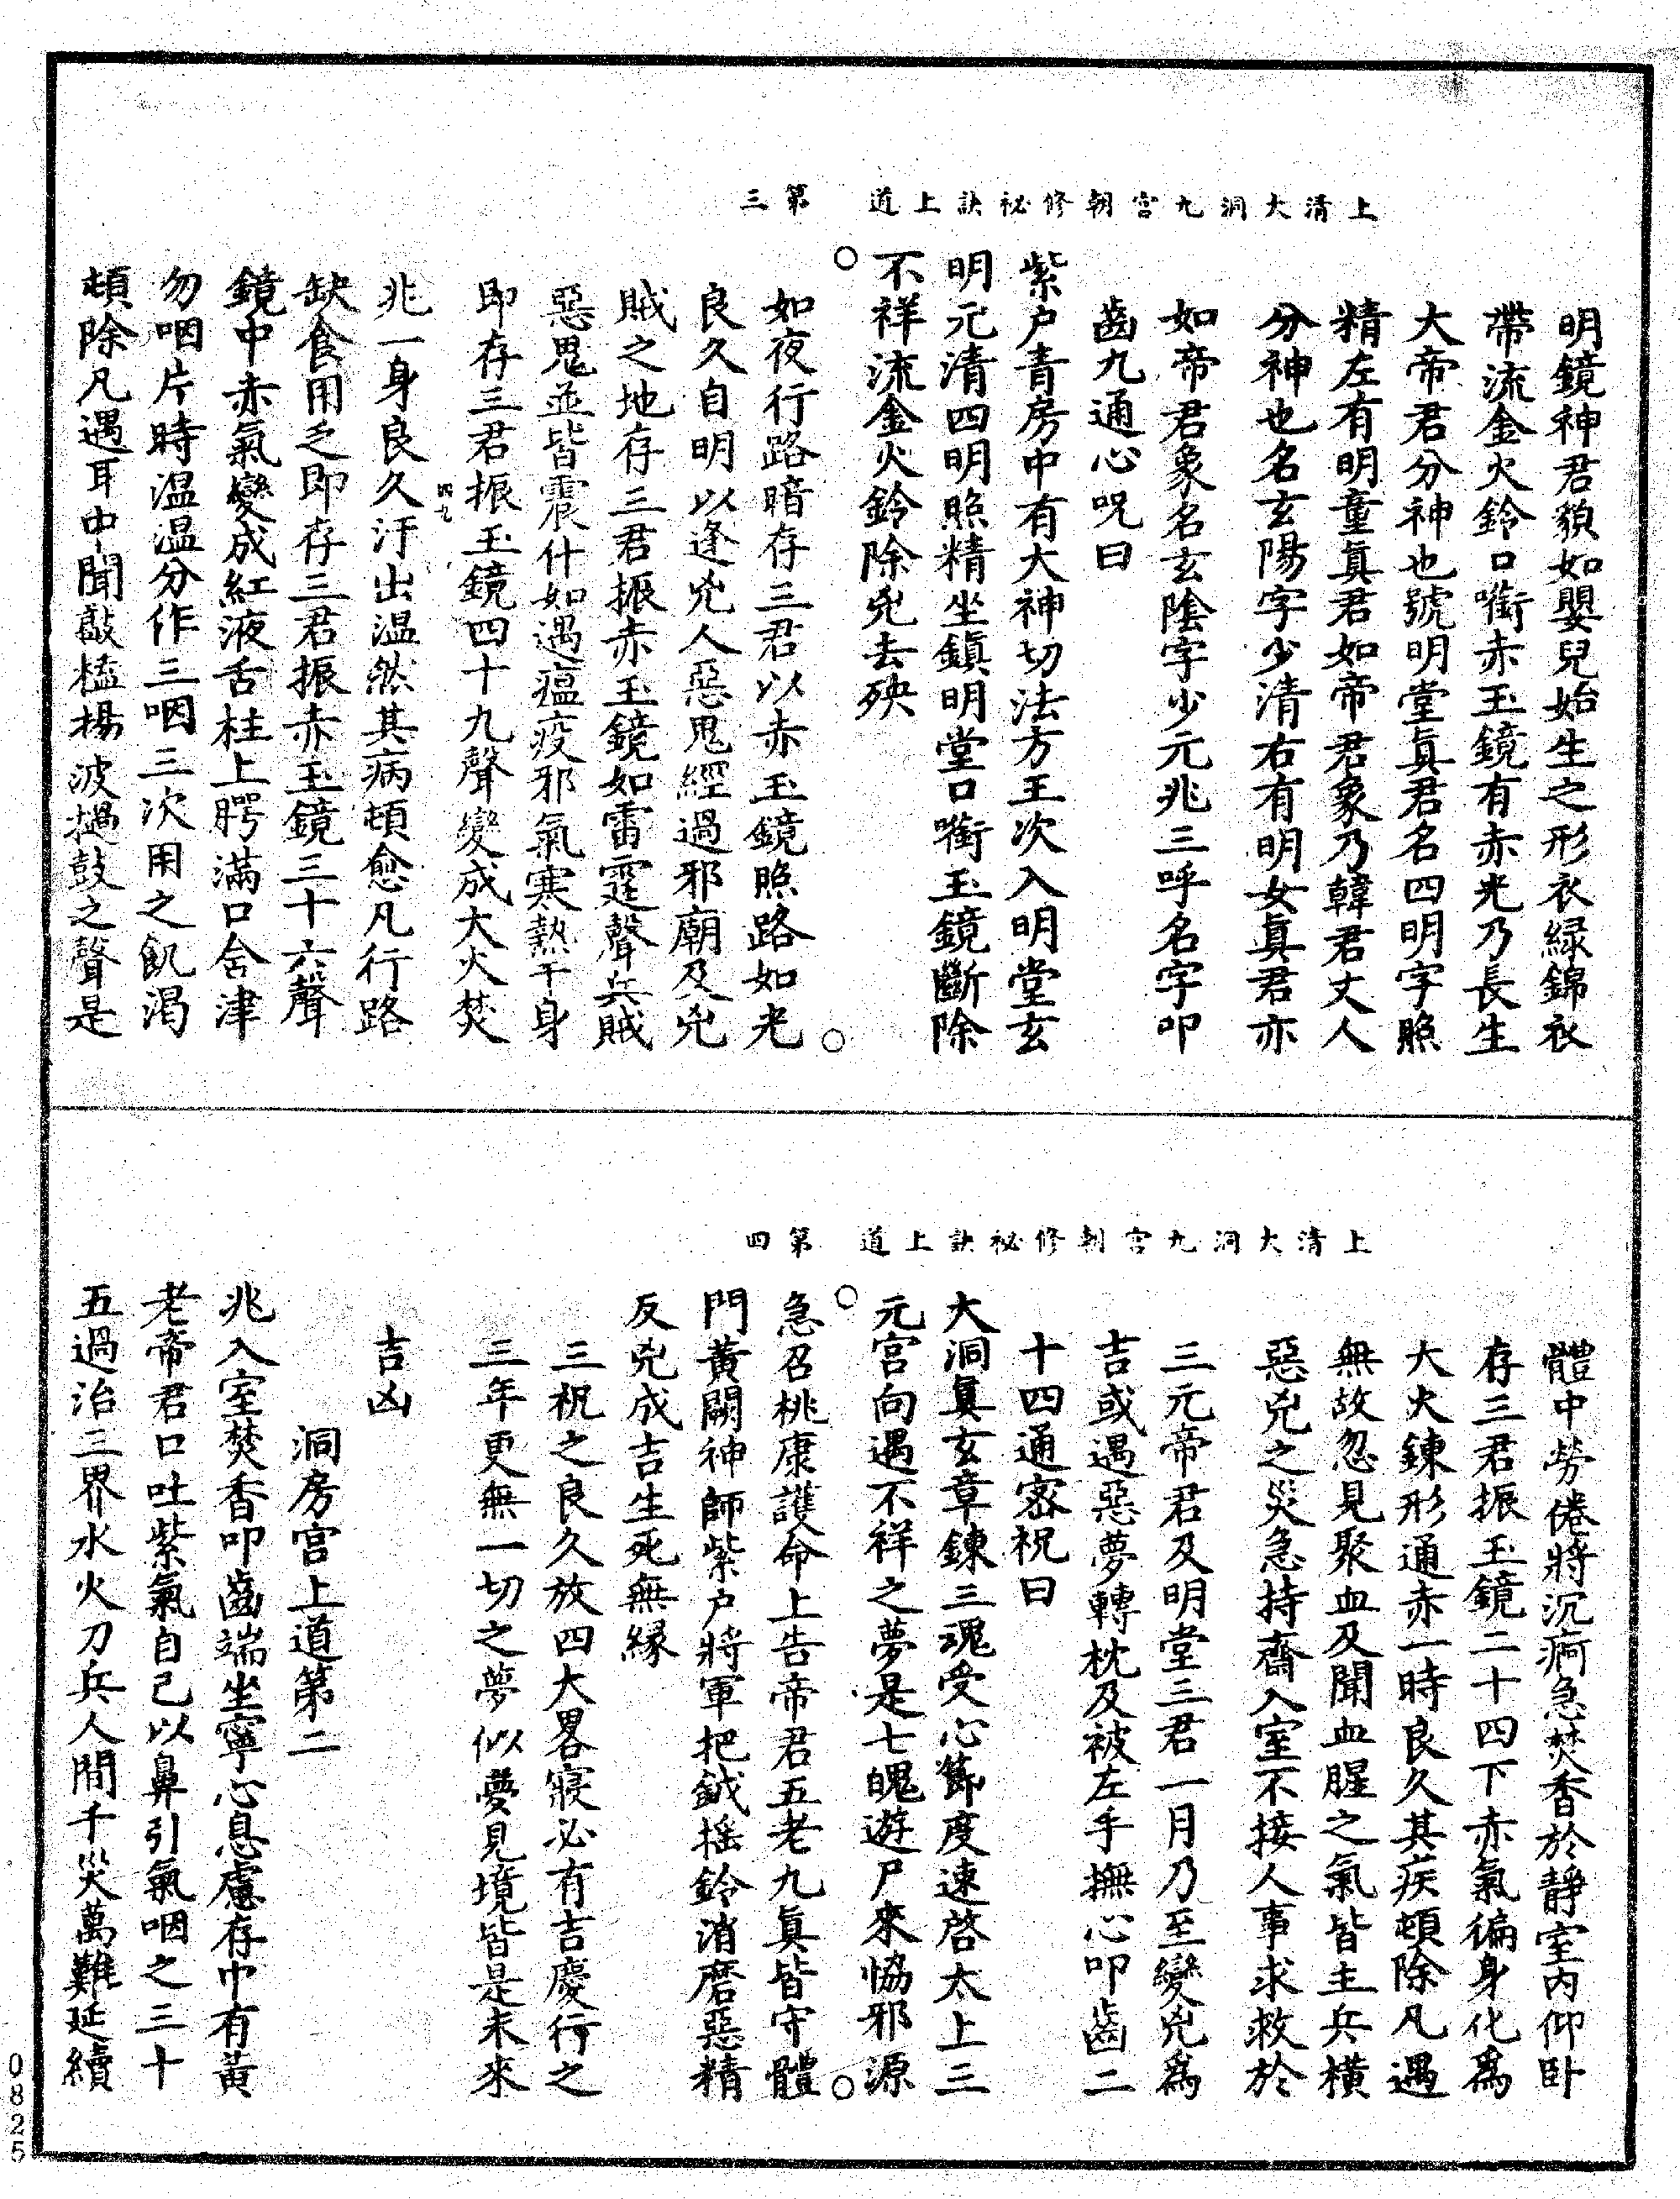 上清大洞九宮朝修祕訣上道　第三
明鏡神君貌如嬰兒始生之形衣緑錦衣
帶流金火鈴口㘅赤玉鏡有赤光乃長生
大帝君分神也號明堂真君名四明字照
精左有明童真君如帝君象乃韓君丈人
分神也名玄陽字少清右有明女真君亦
如帝君象名玄陰字少元兆三呼名字叩
齒九通心呪曰
紫户青房中有大神切法方王次入明堂玄
明元清四明照精坐鎮明堂口㘅玉鏡斷除
不祥流金火鈴除兇去殃
○
○
如夜行路暗存三君以赤玉鏡照路如光
良久自明以逢兇人惡鬼經過邪廟及兇
賊之地存三君振赤玉鏡如雷霆聲兵賊
惡鬼並皆震什如遇瘟疫邪氣寒熱干身
即存三君振玉鏡四十九聲變成大火焚
四九
兆一身良久汗出温然其病頓愈凡行路
缺食用乏即存三君振赤玉鏡三十六聲
鏡中赤氣變成紅液舌柱上腭滿口含津
勿咽片時温温分作三咽三次用之飢渴
頓除凡遇耳中聞敲榼揚波撾鼓之聲是
上清大洞九宮朝修祕訣上道　第四
體中勞倦將沉痾急焚香於靜室内仰卧
存三君振玉鏡二十四下赤氣徧身化為
大火鍊形通赤一時良久其疾頓除凡遇
無故忽見聚血及聞血腥之氣皆主兵橫
惡兇之災急持齋入室不接人事求救於
三元帝君及明堂三君一月乃至變兇為
吉或遇惡夢轉枕及被左手撫心叩齒二
十四通密祝曰
大洞真玄章鍊三魂受心節度速啓太上三
元宮向遇不祥之夢是七魄遊尸來恊邪源
○
○
急召桃康護命上告帝君五老九真皆守體
門黃闕神師紫户將軍把鉞摇鈴消磨惡精
反兇成吉生死無縁
三祝之良久放四大畧寢必有吉慶行之
三年更無一切之夢似夢見境皆是未來
吉凶
洞房宮上道第二
兆入室焚香叩齒端坐寧心息慮存中有黃
老帝君口吐紫氣自己以鼻引氣咽之三十
五過治三界水火刀兵人間千災萬難延續
0825